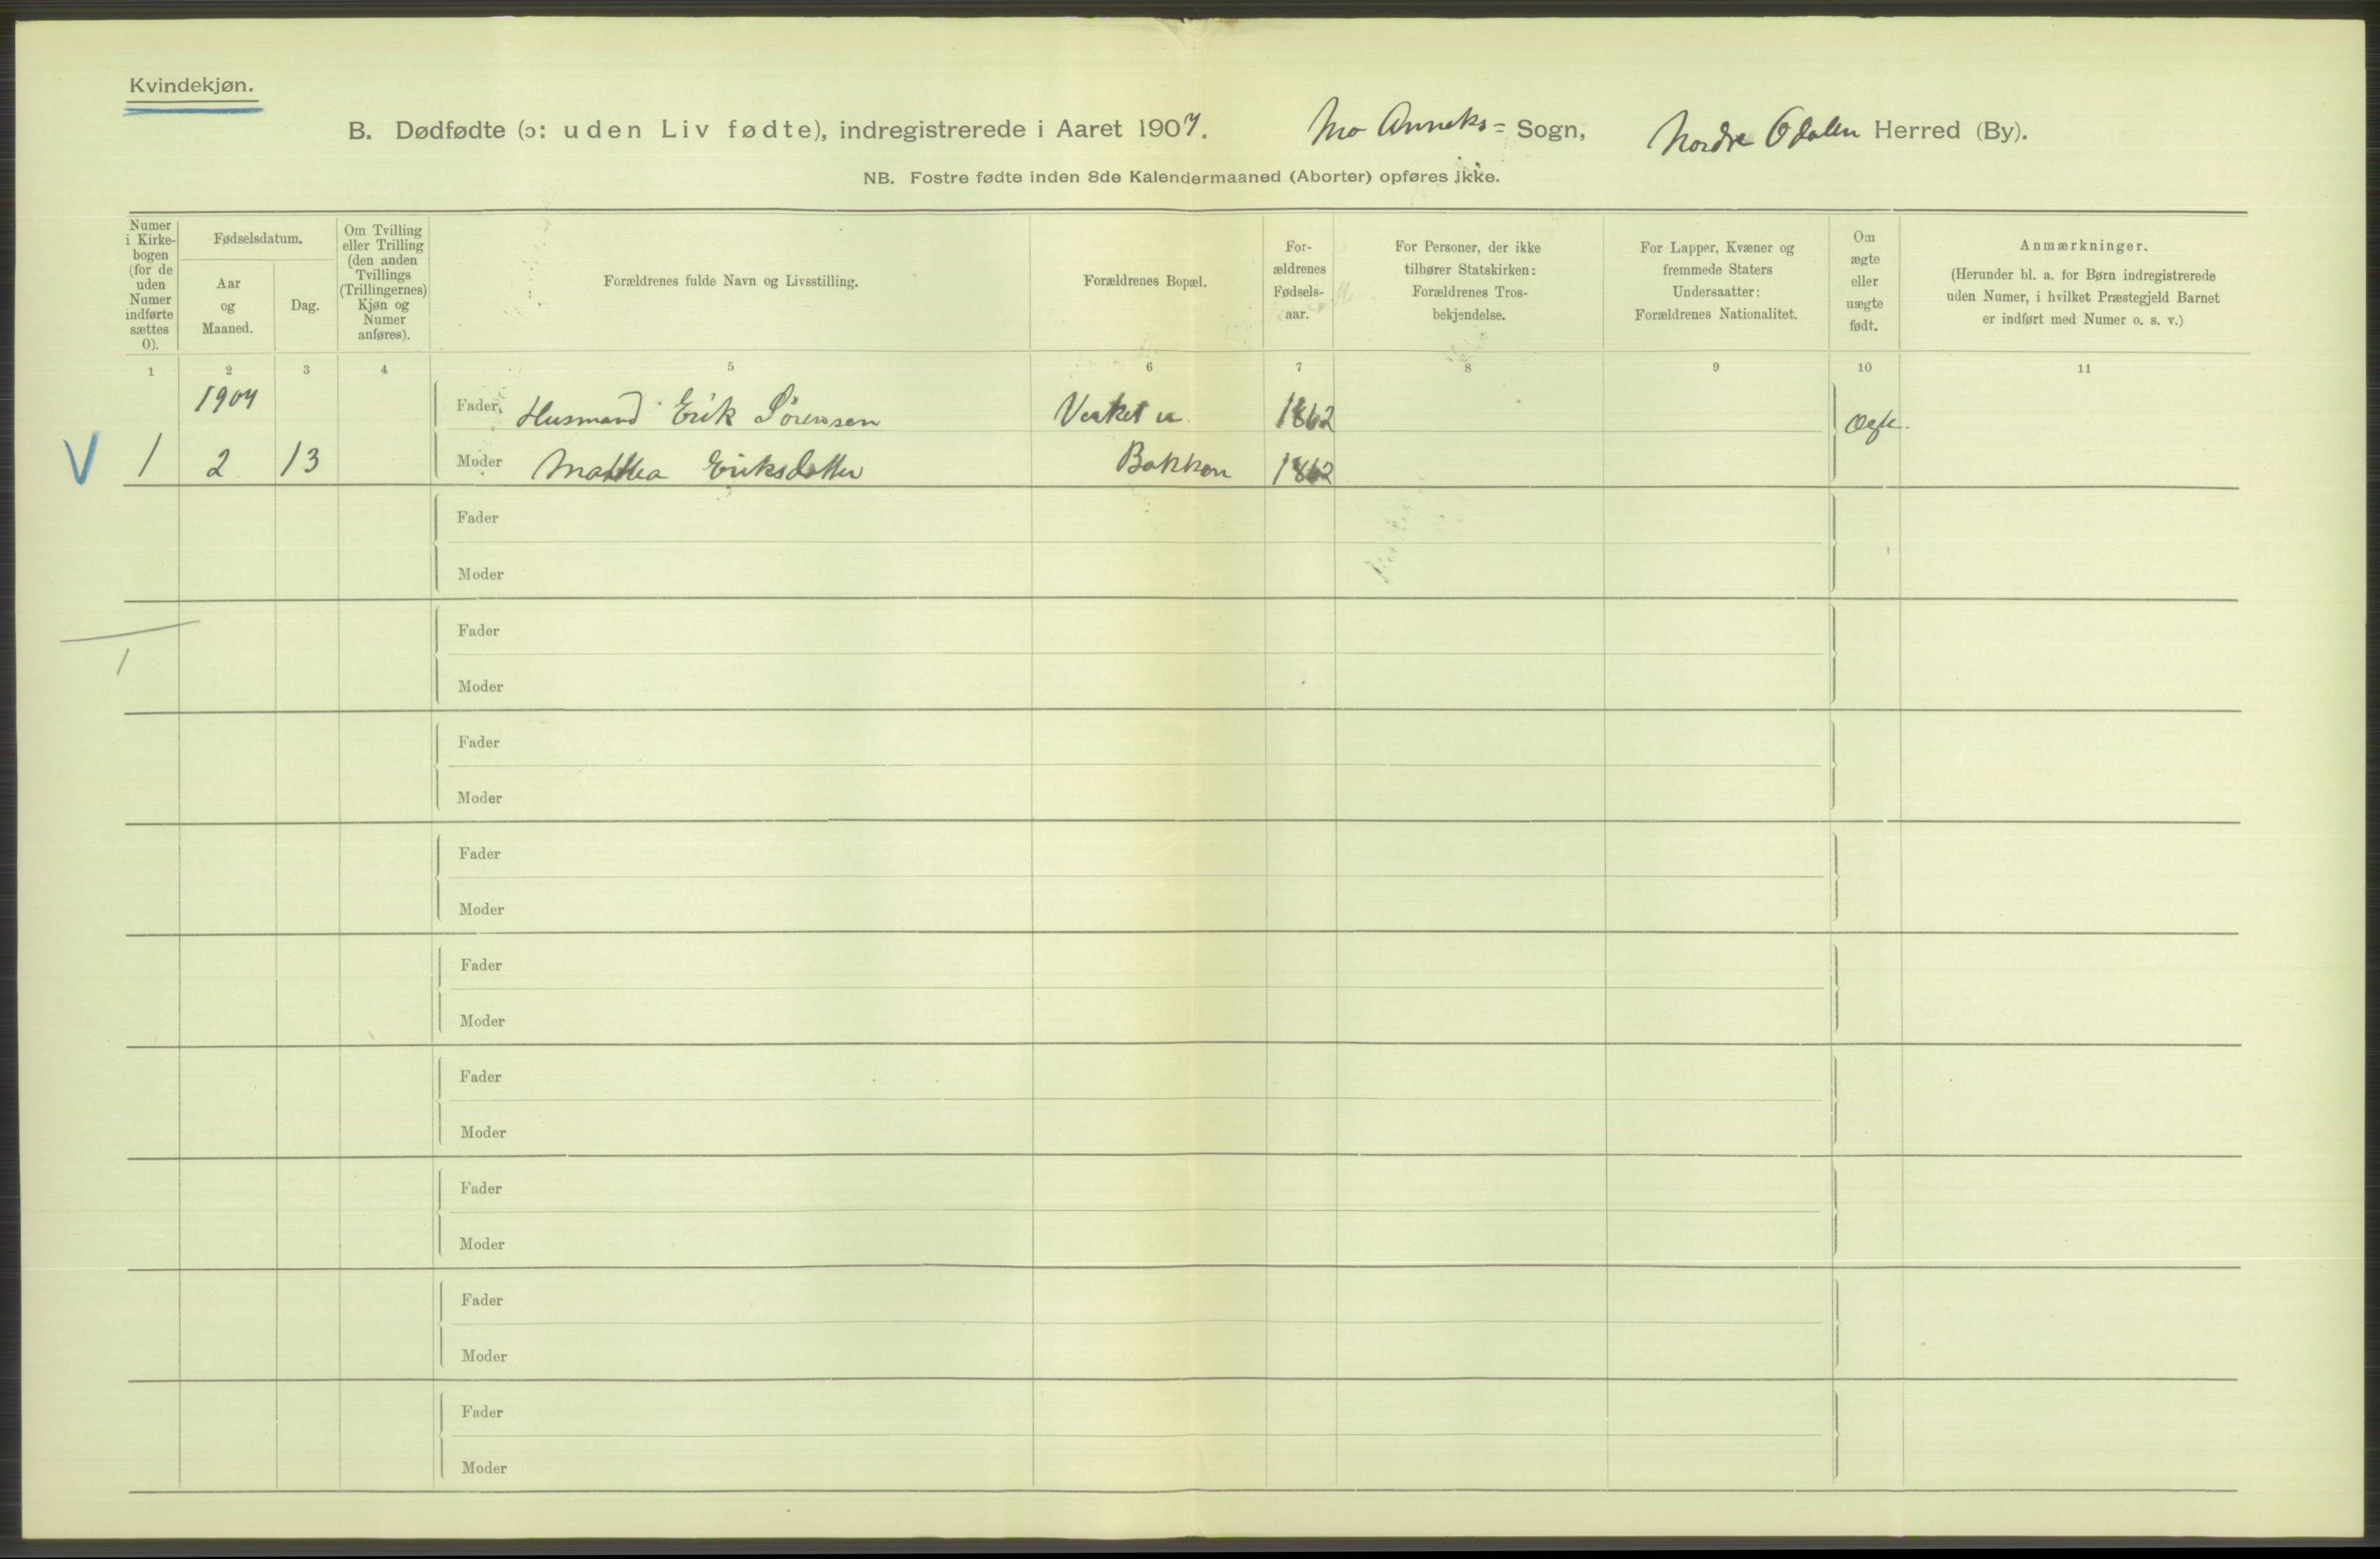 Kvindekjøn.
B. Dødfødte (ɔ: uden Liv fødte), indregistrerede i Aaret 1907. Mo Anneks= Sogn, Nordre Odalen Herred (By).
NB. Fostre fødte inden 8de Kalendermaaned (Aborter) opføres ikke.
Numer i Kirke-bogen (for de uden Numer indførte sættes 0).
Fødselsdatum.
Aar og Maaned.
Dag.
Om Tvilling eller Trilling (den anden Tvillings (Trillingernes) Kjøn og Numer anføres).
Forældrenes fulde Navn og Livsstilling.
Forældrenes Bopæl.
For-ældrenes Fødsels-aar.
For Personer, der ikke tilhører Statskirken: Forældrenes Tros-bekjendelse.
For Lapper, Kvæner og fremmede Staters Undersaatter: Forældrenes Nationalitet.
Om ægte eller uægte født.
Anmærkninger.
(Herunder bl. a. for Børn indregistrerede uden Numer, i hvilket Præstegjeld Barnet er indført med Numer o. s. v.)
1 2 3 4 5 6 7 8 9 10 11
1907 Fader Husmand Erik Sørensen Verket u. 1862 Ægte.
V 1 2 13 Moder Mathea Eriksdatter Bakken 1862
Fader
Moder
Fader
1
Moder
Fader
Moder
Fader
Moder
Fader
Moder
Fader
Moder
Fader
Moder
Fader
Moder
Fader
Moder